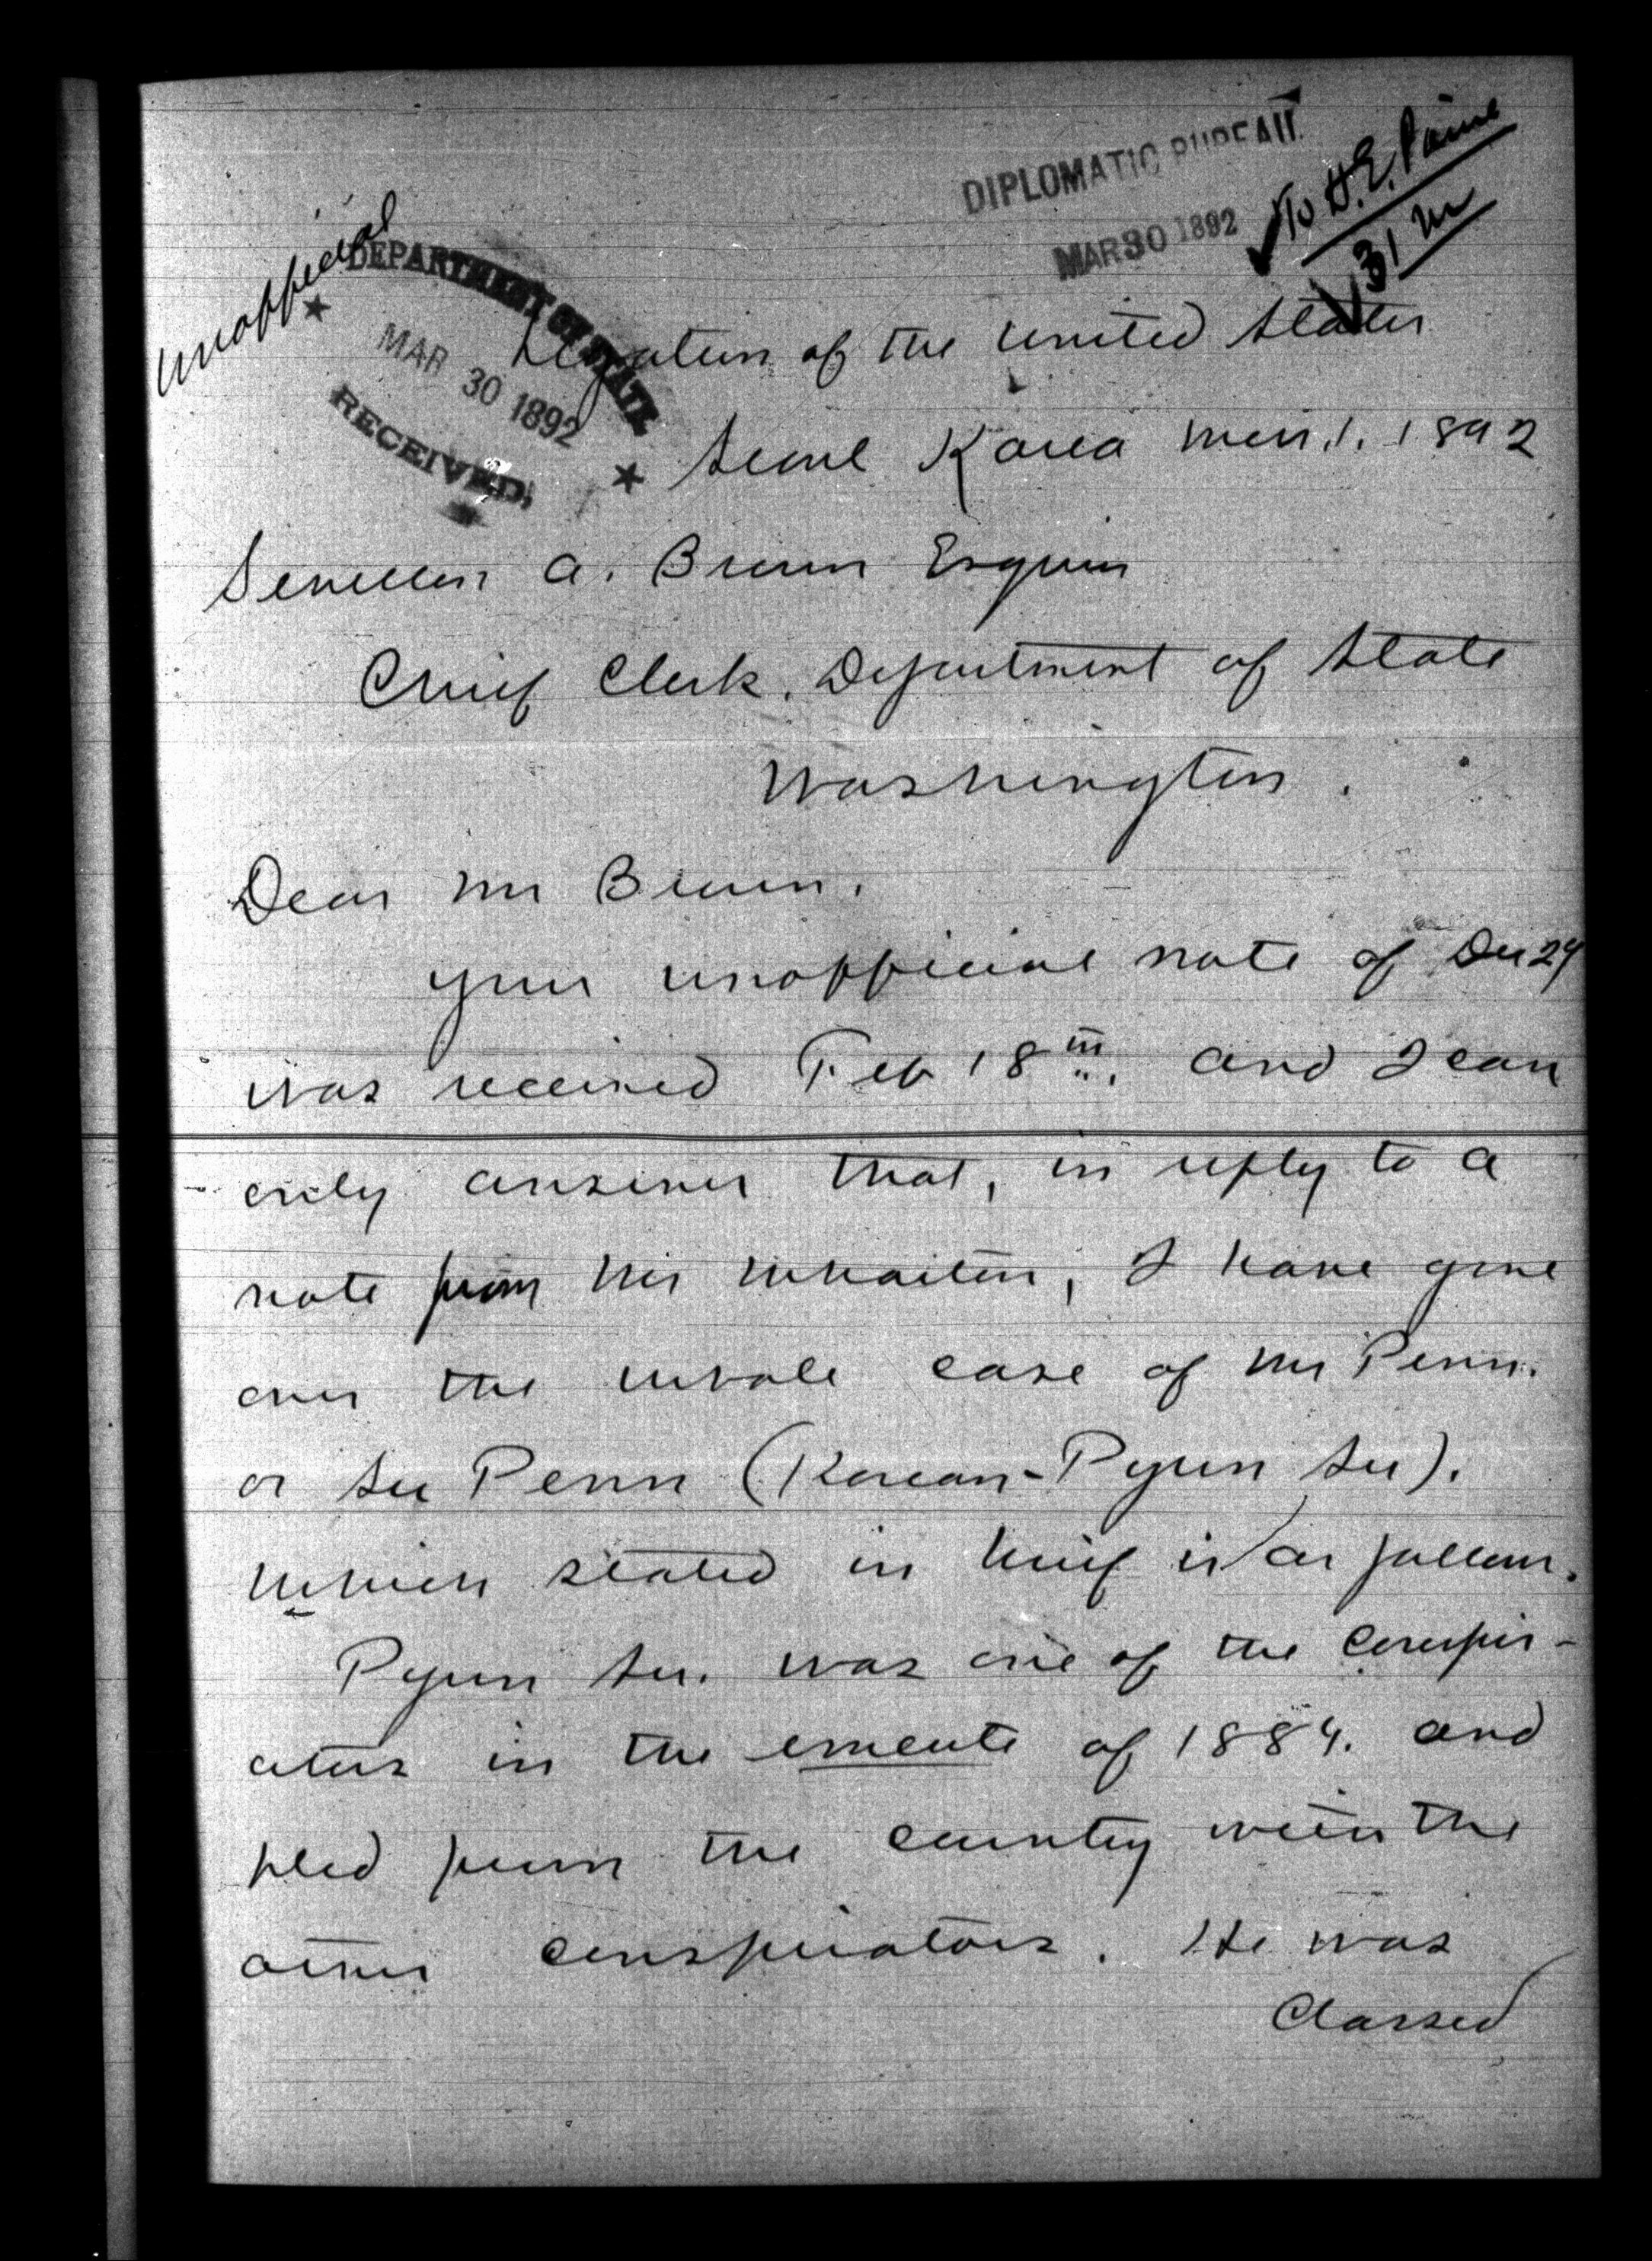 DIPLOMATIC BUREAU
MAR 30 1892
To H.E. Paine
31 M
Unofficial
DEPARTMENT OF STATE
MAR 30 1892
RECEIVED
Legation of the United States
Seoul Korea 1. 1892
Sevellon A. Brown Esquire
Chief Clerk. Department of State
Washington.
Dear Mr Brown.
Your unofficial note of Dec 24
was received Feb 18th. and I can
only answer that, in reply to a
note from Mr Wharton, I have gone
over the whole case of Mr Penn.
or Su Penn (Korean-Pyun Su).
which stated in brief is as follows.
Pyun Su. was one of the conspir-
ators in the emeute of 1884. and
fled from the country with the
other conspirators. He was
Classed